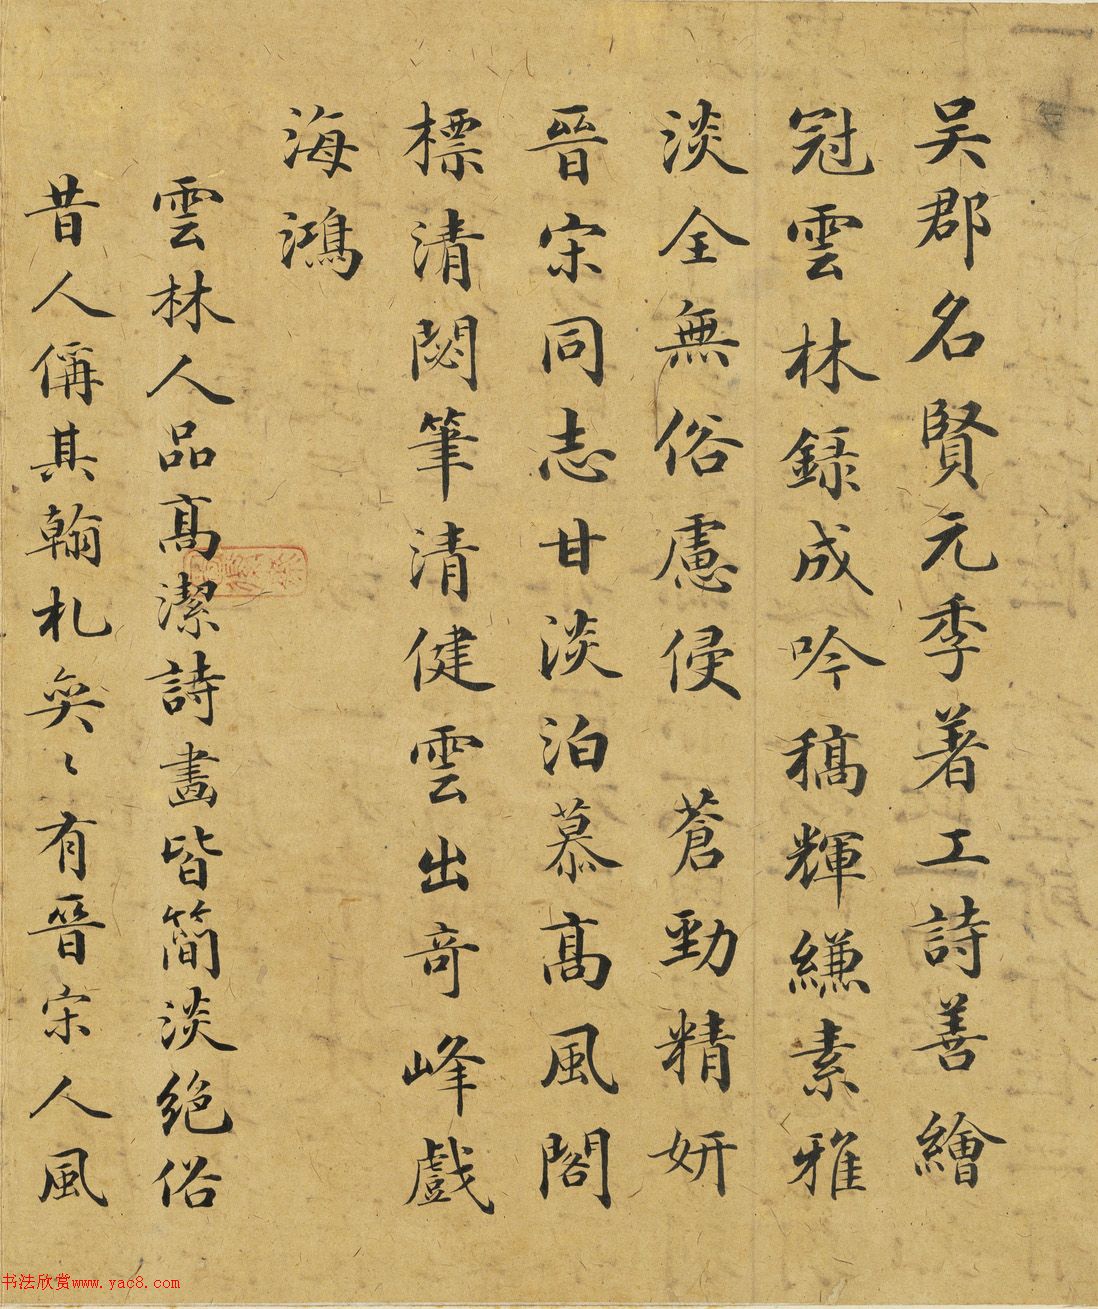 吴郡名賢元季著工詩善繪
冠雲林録成吟稿輝縑素雅
淡全無俗慮侵 蒼勁精妍
晉宋同志甘淡泊慕髙風閣
標清閟筆清健雲出奇峰戲
海鴻
雲林人品髙潔詩畫皆簡淡绝俗
昔人偁其翰札奕〻有晉宋人風
书法欣赏www.yac8.com